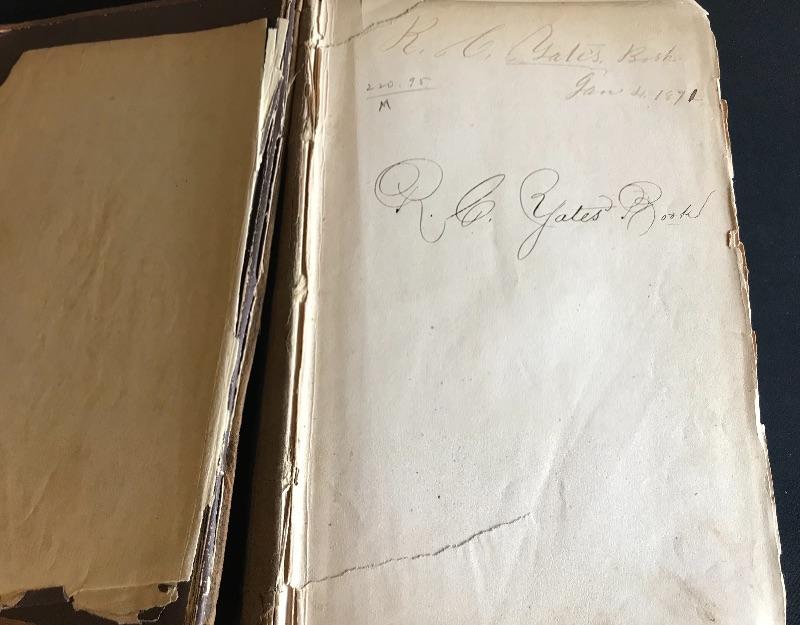 R. C. Yates Book
Jan 2, 1871
220.95
M
R. C. Yates Book